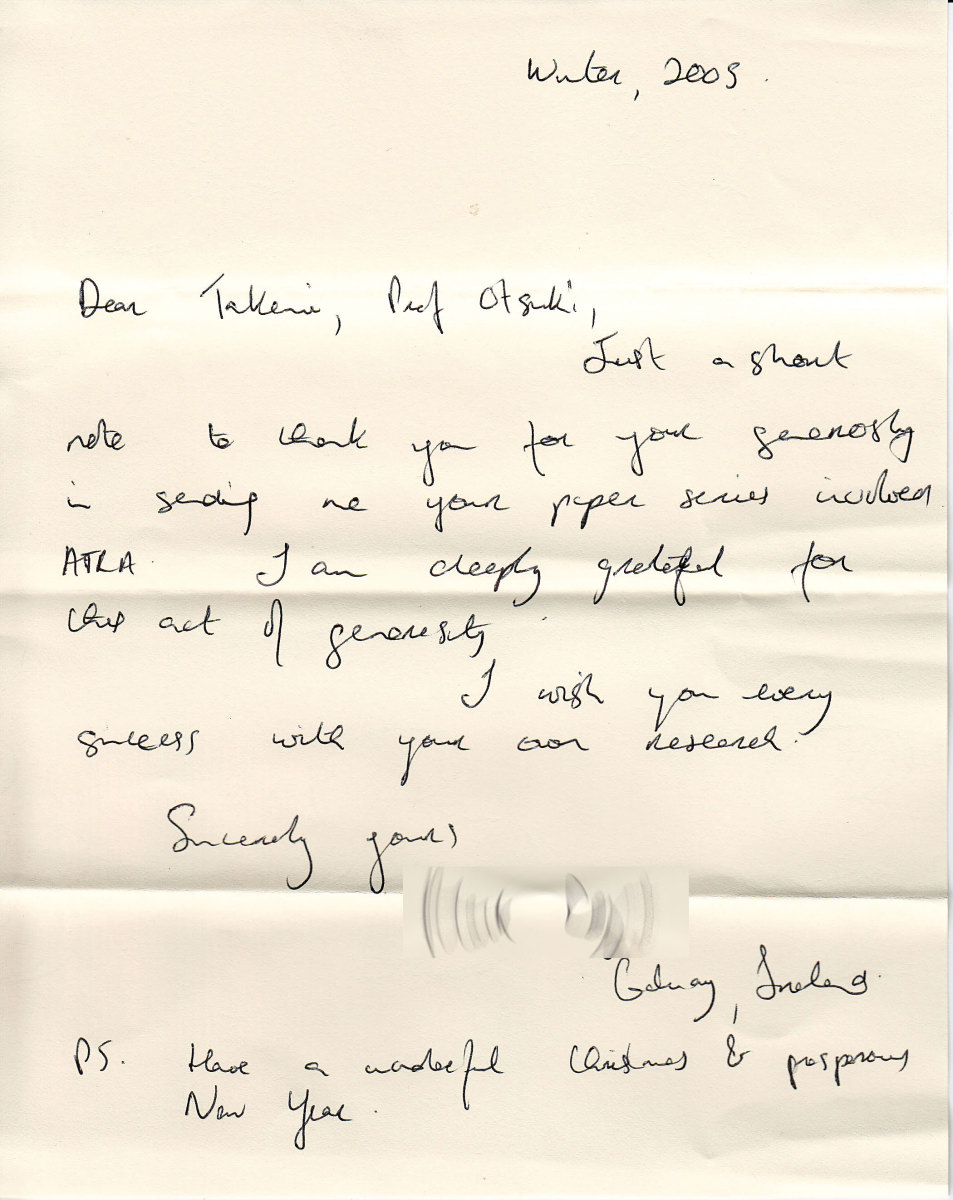 Winter, 2005.
Dear Takemi, Prof Otsuki,
Just a short
note to thank you for your generosity
in sending me your paper series involved
ATRA. I am deeply grateful for
this act of generosity.
I wish you every
success with your own research.
Sincerely yours
Galway, Ireland.
PS. Have a wonderful Christmas & prosperous
New Year.